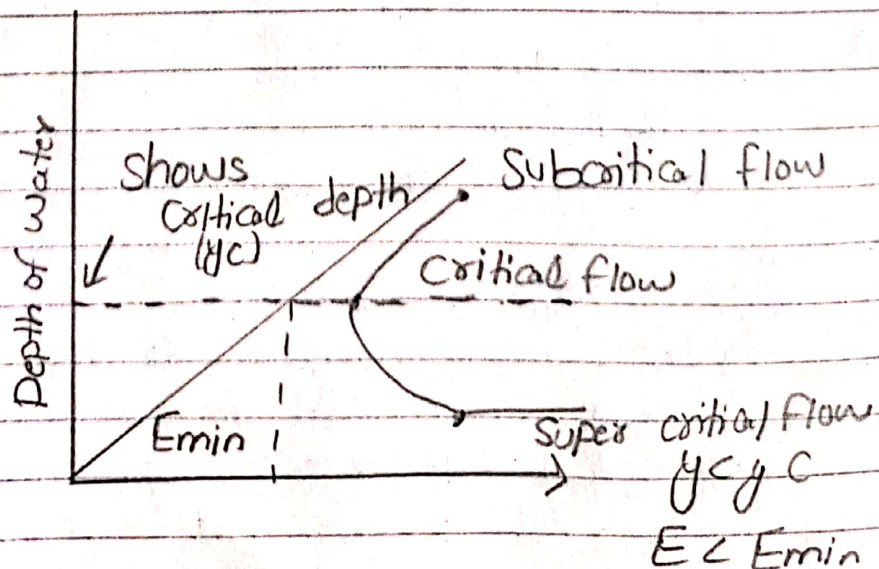 Depth of Water
Shows
Critical depth
(yc)
Subcritical flow
Critical flow
Emin
Super critial flow
y < y c
E < Emin